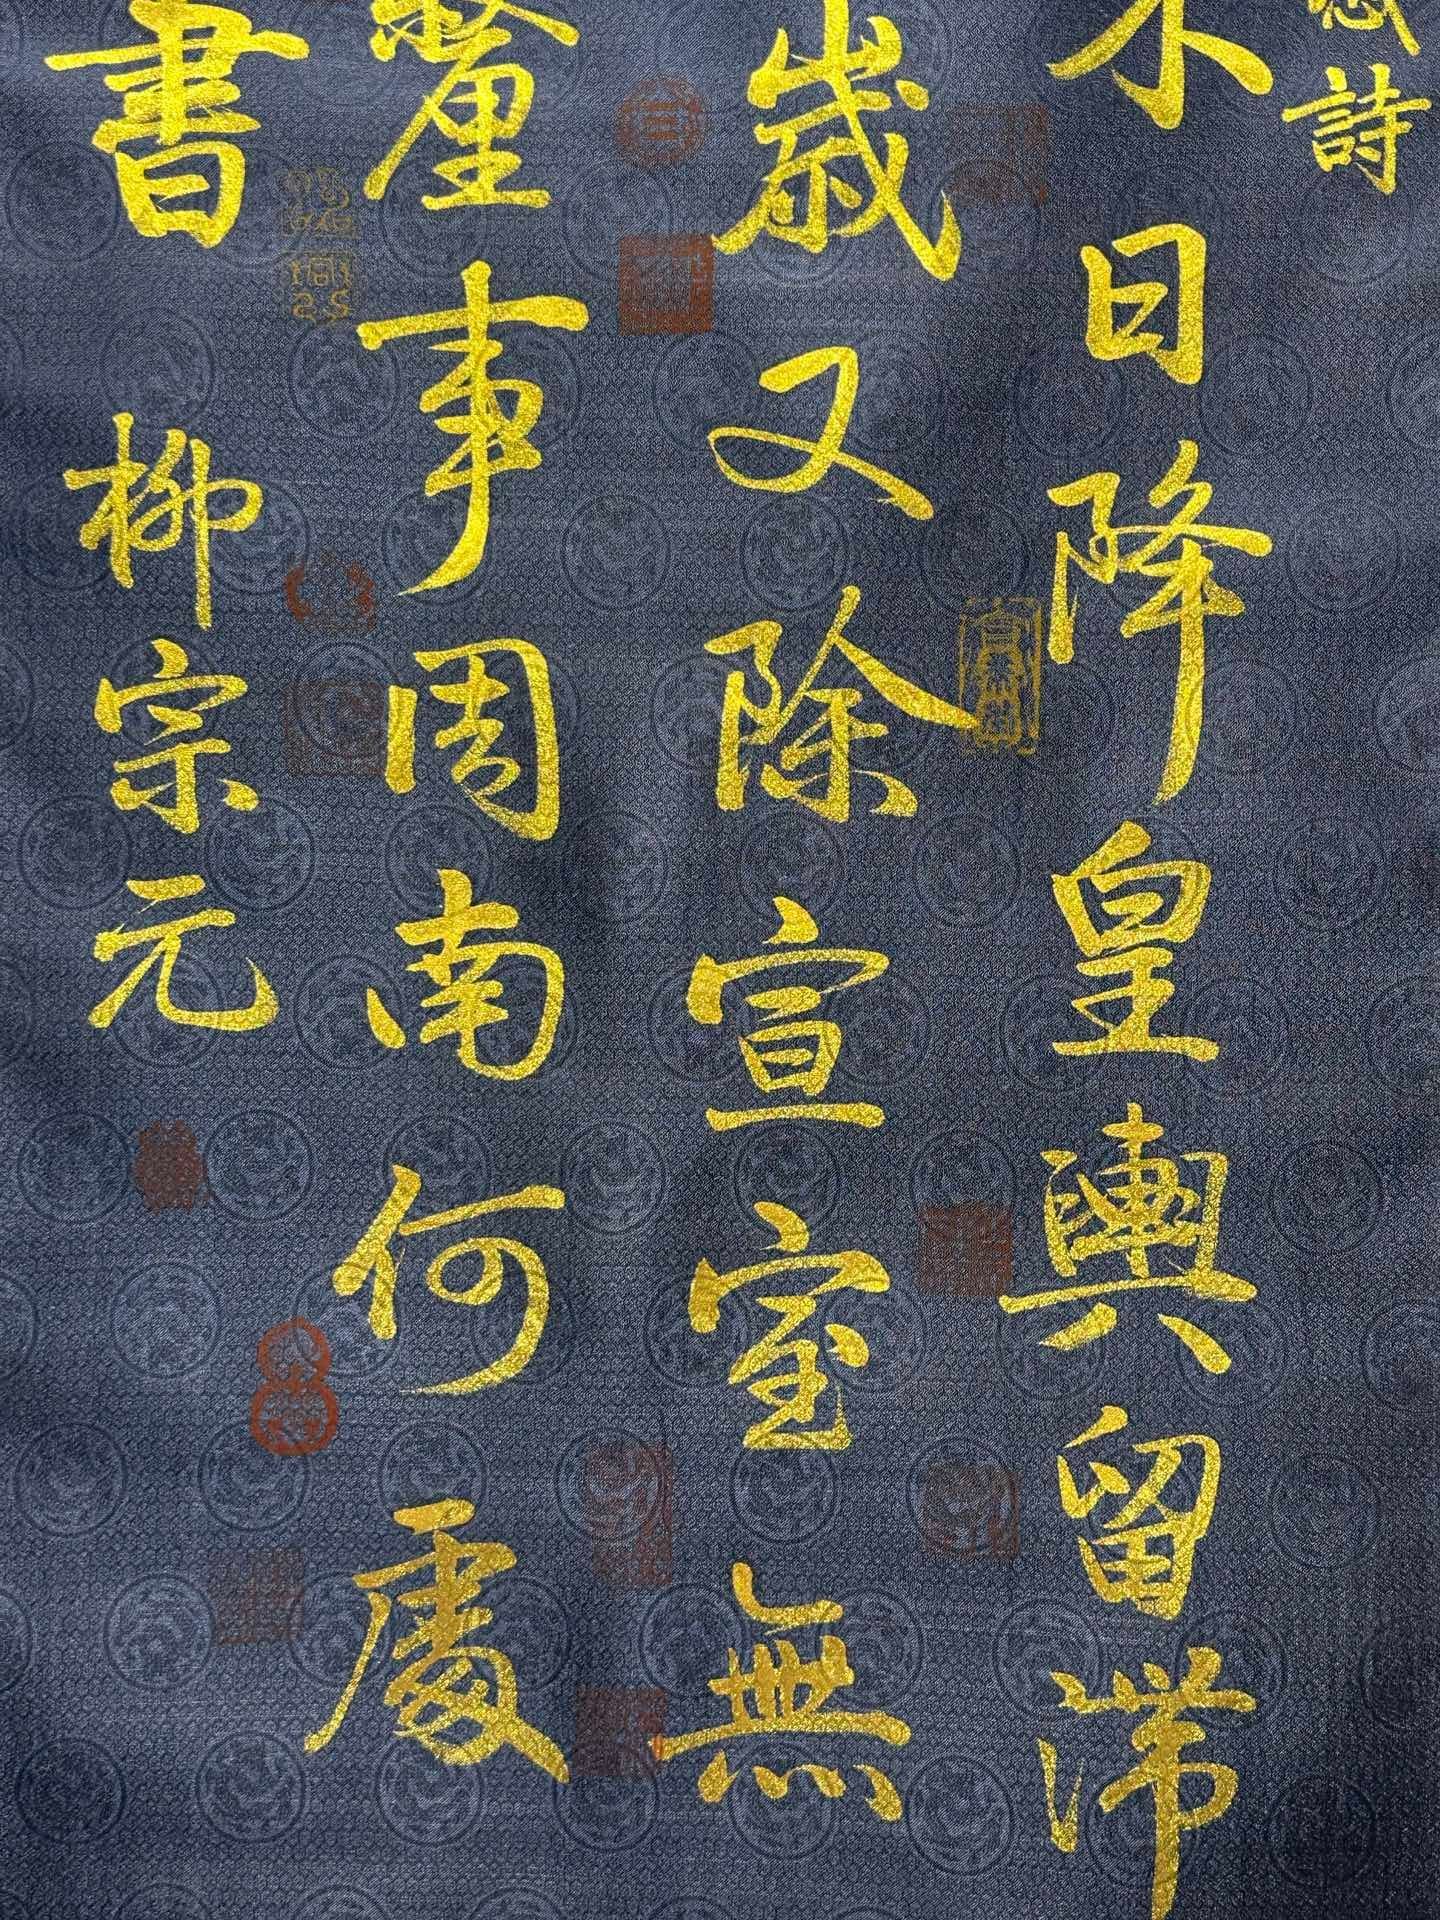 詩
日降皇輿留滯
歲又除宣室無
釐事周南何處
書 柳宗元